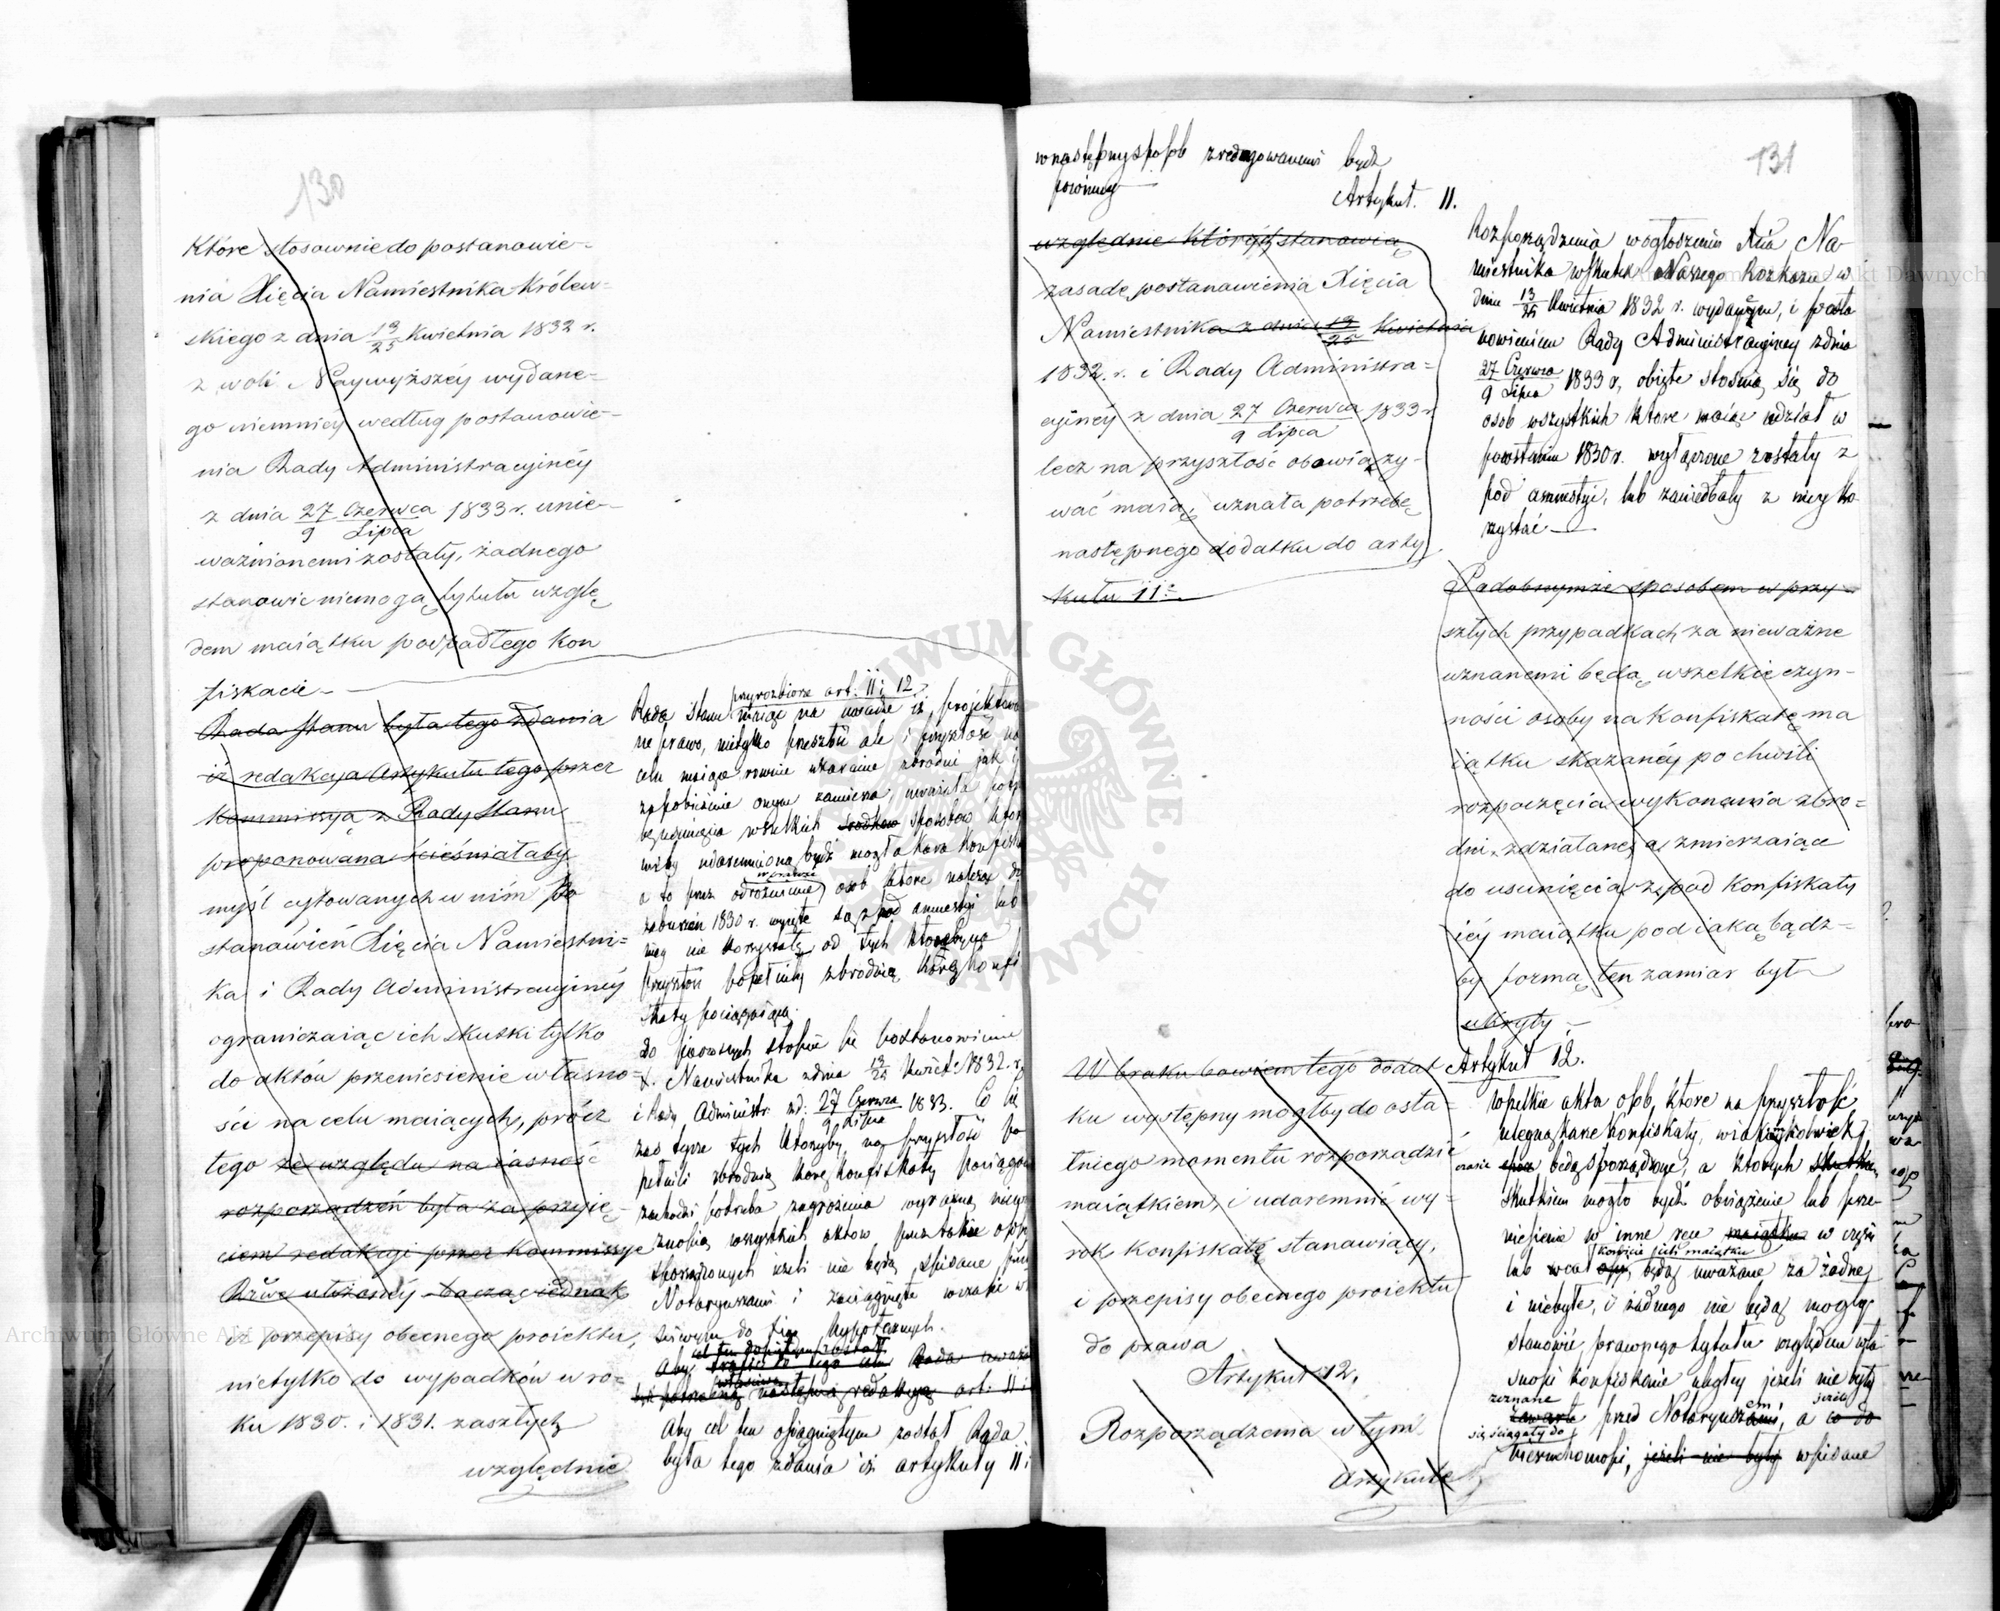 130
Które stosownie do postanowie-
nia Xięcia Namiestnika Królew-
skiego z dnia 13/25 Kwietnia 1832 r.
z woli Naywyższéy wydane-
go niemniéy według postanowie-
nia Rady Administracyinéy
z dnia 27 Czerwca/9 Lipca 1833 r. unie-
ważnionemi zostały, żadnego
stanowić niemogą tytułu wzglę
dem maiątku podpadłego kon
fiskacie.
Rada Stanu była tego zdania
iż redakcya Artykułu tego przez
Kommissyą z Rady Stanu
proponowana ścieśniałaby
myśl cytowanych w nim Po
stanowień Xięcia Namiestni-
ka i Rady Administracyinéy
ograniczaiąc ich skutki tylko
do aktów przeniesienie własno-
ści na celu maiących, prócz
tego ze względu na iasność
rozporządzeń była za przyię-
ciem redakcyi przez Kommissye
Rzwe ułożonéy bacząc iednak
iż przepisy obecnego proiektu,
nietylko do wypadków w ro-
ku 1830. i 1831. zaszłych
względnie
przy rozbiorze art. 11 i 12
Rada Stanu maiąc na uwadze iż projektowa
ne prawo, nietylko przeszłość ale i przyszłość na
celu maiące rownie ukaranie zbrodni jak i
zapobieżenie onym zamierza, uważała potrz
wszelkich środków sposobów któr
udaremnioną być mogła kara konfiska
a to przez odróżnienie wyraźne osób które należąc do
zaburzeń 1830 r. wyięte są z pod amnestyi lub
niey nie korzystały od tych któreby na
przyszłość popełniły zbrodnią, karę konfi
skaty pociągaiącą.
do pierwszych stosuie się postanowienie
X. Namiestnika z dnia 13/25 Kwiet: 1832. r.
i Rady Administr. z d. 27 Czerwca/9 Lipca 1833. Co się
zaś tycze tych któryby na przyszłość po
pełnili zbrodnią karę konfiskaty pociągaią
zachodzi potrzeba zagrożenia wyraźną niewa
żnością wszystkich aktów, przez takie osoby
sporządzonych ieżeli nie będą spisane przed
Notaryuszami i zaciągnięte w czasie wł
aściwym do Xiąg hypotecznych.
cel ten dopiętym został
Aby Rada uważa
właściwe
następną redakcyą art: 11 i
Aby cel ten osiągniętym został Rada
była tego zdania iż artykuły 11 i
131
w następny sposób zredagowanemi bydź
powinny
Artykuł. 11.
względnie których stanowią
zasadę postanowienia Xięcia
Namiestnika z dnia 13/25 Kwietnia
1832. r. i Rady Administra-
cyinéy z dnia 27 Czerwca/9 Lipca 1833 r.
lecz na przyszłość obowiązy-
wać maią, uznała potrzebę
następnego dodatku do arty
kułu 11º
W braku bowiem tego dodat
ku występny mógłby do osta-
tniego momentu rozporządzić
maiątkiem, i udaremnić wy-
rok konfiskatę stanowiący,
i przepisy obecnego proiektu
do prawa
Artykuł 12.
Rozporządzenia w tym
Artykule
Rozporządzenia w ogłoszeniu Xcia Na-
miestnika w skutek Naszego Rozkazu w
dniu 13/25 Kwietnia 1832 r. wydanym, i posta
nowieniem Rady Administracyiney z dnia
27 Czerwca/9 Lipca 1833 r, obięte stosuią się do
osób wszystkich które maiąc udział w
powstaniu 1830 r. wyłączone zostały z
pod amnestyi, lub zaniedbały z niey ko
rzystać
Podobnymże sposobem w przy-
szłych przypadkach za nieważne
uznanemi będą wszelkie czyn-
ności osoby na konfiskatę ma
iątku skazanéy po chwili
rozpoczęcia wykonania zbro-
dni zdziałane, a zmierzaiące
do usunięcia z pod konfiskaty
iéy maiątku pod iaką bądź-
by formą ten zamiar był
ukryty.
Artykuł 12.
Wszelkie akta osób, które na przyszłość
ulegną karze konfiskaty, w iakimkolwiek
czasie będą sporządzone, a których skutku
skutkiem mogło bydź obciążenie lub prze-
niesienie w inne ręce maiątku w części
lub w całości ich maiątku będą uważane za żadne
i niebyłe, i żadnego nie będą mogły
stanowić prawnego tytułu względem wła
sności konfiskacie uległey jeżeli nie były
zeznane przed Notaryuszem, a jeżeli co do
się ściągały do
nieruchomości, jeżeli nie były wpisane